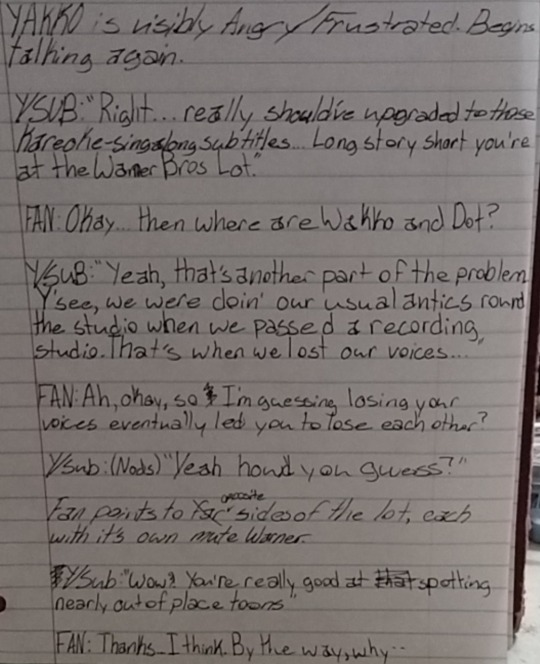 YAKKO is visibly Angry/Frustrated. Begins
talking again.
YSUB: "Right... really should've upgraded to those
Kareoke-singalong subtitles... Long story short you're
at the Warner Bros Lot."
FAN: Okay... then where are Wakko and Dot?
Y/SUB: "Yeah, that's another part of the problem
Y'see, we were doin' our usual antics round
the studio when we passed a recording
studio. That's when we lost our voices..."
FAN: Ah, okay, so I'm guessing losing your
voices eventually led you to lose each other?
Ysub: (Nods) "Yeah how'd you guess?"
Fan points to opposite sides of the lot, each
with it's own mute Warner.
Y/Sub: "Wow? You're really good at spotting
nearly out of place toons"
FAN: Thanks... I think. By the way, why--